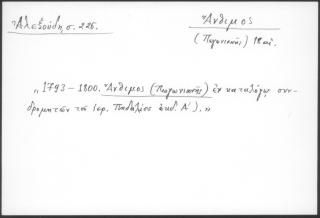 Ἀλεξούδη σ. 226.
Ἄνθιμος
(Πωγωνιανῆς) 18 αἰ.
„ 1793 - 1800. Ἄνθιμος (Πωγωνιανῆς) ἐν καταλόγῳ συν-
δρομητῶν τῶν Ἱερ. Παδαλίου ἐκδ. Α΄). „